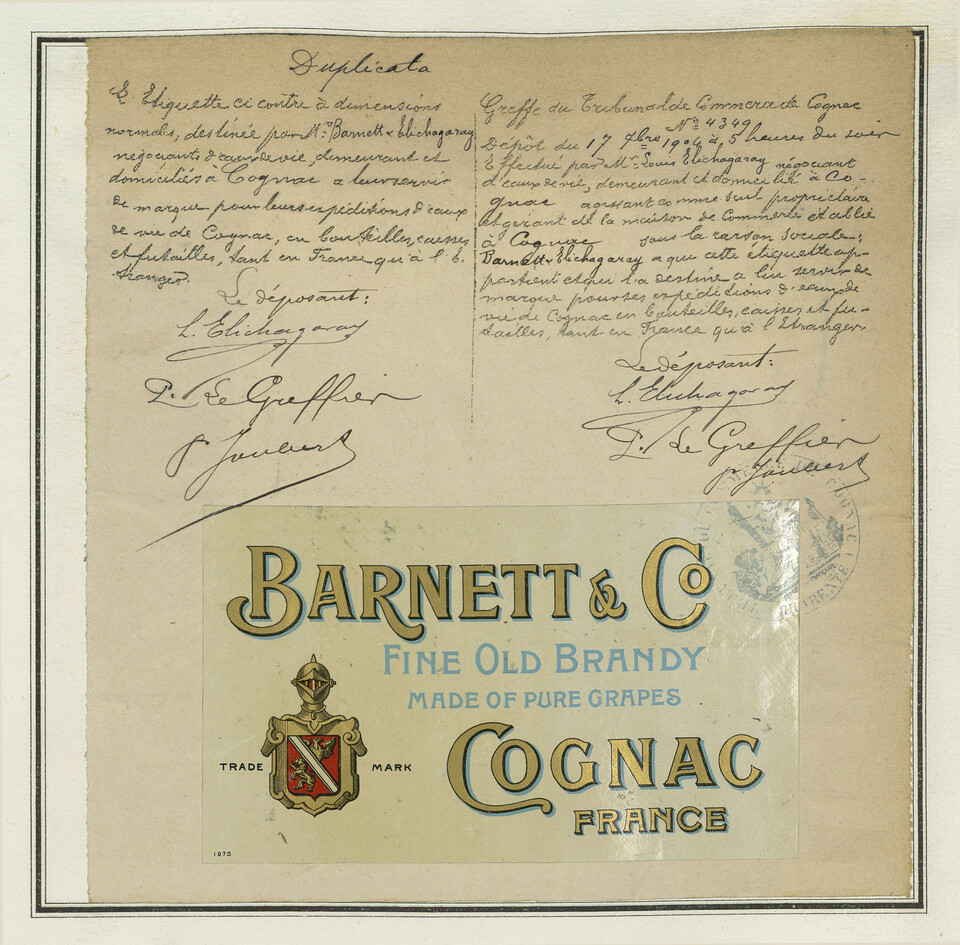 Duplicata
L'Etiquette ci contre à dimensions
normales, destinée par Mrs Barnett & Elichagaray
négociants d'eaux de vie, demeurant et
domiciliés à Cognac a leur servir
de marque pour leurs expéditions d'eaux
de vie de Cognac, en bouteilles, caisses
et futailles, tant en France qu'à l'E-
tranger.
Le déposant:
L. Elichagaray
P. Le Greffier
Greffe du Tribunal de Commerce de Cognac
No 4349
Dépôt du 17 7bre 1904 à 5 heures du soir
Effectué par Mr Louis Elichagaray négociant
d'eaux de vie, demeurant et domicilié à Co-
gnac agissant comme seul propriétaire
et gérant de la maison de Commerce établie
à Cognac sous la raison sociale:
Barnett & Elichagaray a que cette étiquette ap-
partient et qui l'a destine a lui servir de
marque pour ses expéditions d'eaux de
vie de Cognac en bouteilles, caisses et fu-
tailles, tant en France qu'à l'Etranger.
Le déposant:
L. Elichagaray
P. Le Greffier
BARNETT & Co
FINE OLD BRANDY
MADE OF PURE GRAPES
TRADE MARK
COGNAC
FRANCE
1075